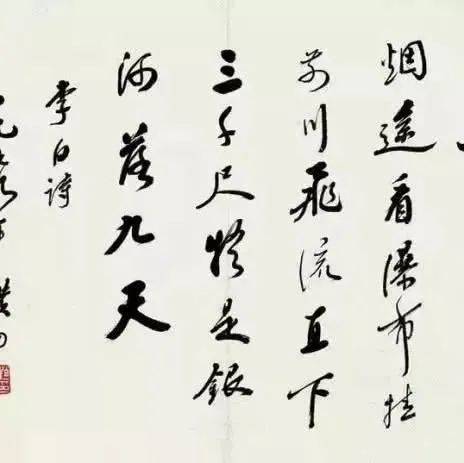 烟遥看瀑布挂
前川飛流直下
三千尺疑是銀
河落九天
李白詩